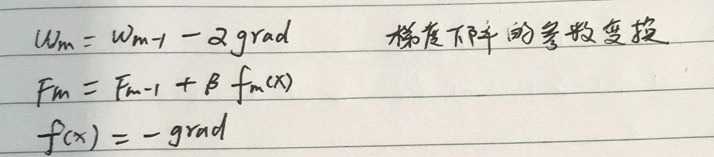 Wm = Wm-1 - 2 grad 梯度下降的参数变换
Fm = Fm-1 + β fm(x)
f(x) = - grad